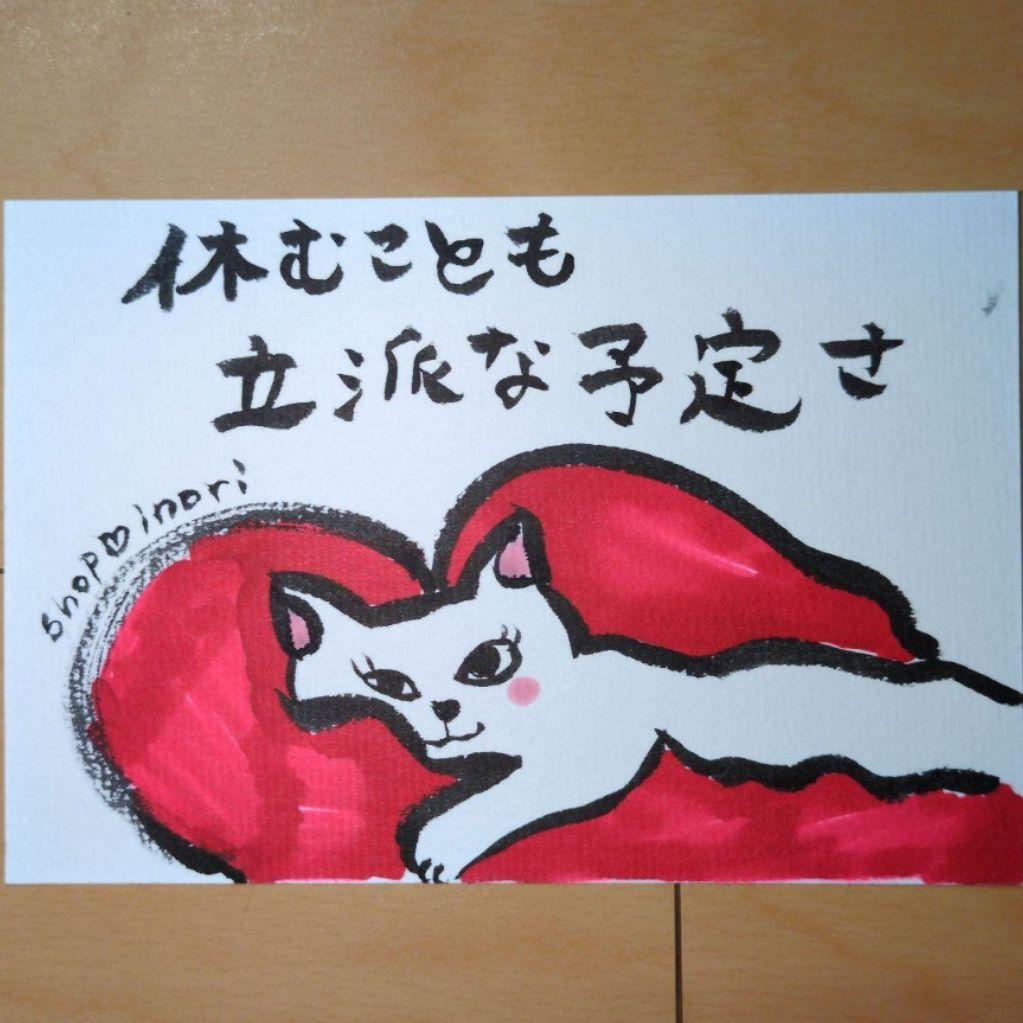 休むことも
立派な予定さ
shop♡inori